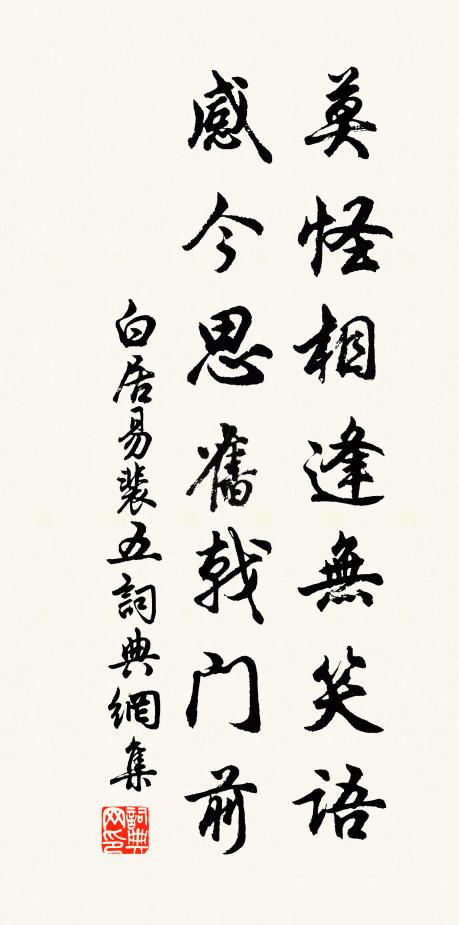 莫怪相逢無笑語
感今思舊戟门前
白居易裴五詞典網集
詞典网印